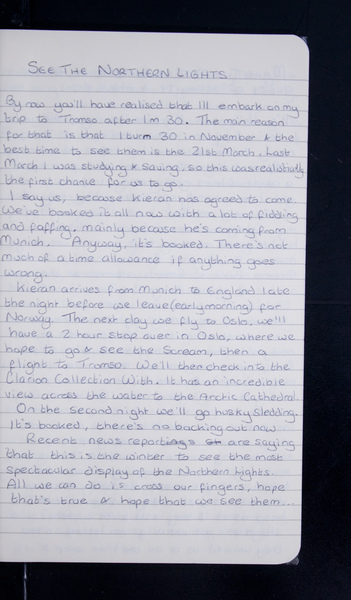 SEE THE NORTHERN LIGHTS
By now you'll have realised that I'll embark on my
trip to Tromso after I'm 30. The main reason
for that is that I turn 30 in November & the
best time to see them is the 21st March. Last
March I was studying & saving, so this was realistically
the first chance for us to go.
I say us, because Kieran has agreed to come.
We've booked it all now with a lot of fiddling
and faffing, mainly because he's coming from
Munich. Anyway, it's booked. There's not
much of a time allowance if anything goes
wrong.
Kieran arrives from Munich to England late
the night before we leave (early morning) for
Norway. The next day we fly to Oslo, we'll
have a 2 hour stop over in Oslo, where we
hope to go & see the Scream, then a
flight to Tromso. We'll then check into the
Clarion Collection With. It has an incredible
view across the water to the Arctic Cathedral.
On the second night we'll go husky sledding.
It's booked, there's no backing out now.
Recent news reportings are saying
that this is the winter to see the most
spectacular display of the Northern Lights.
All we can do is cross our fingers, hope
that's true & hope that we see them...